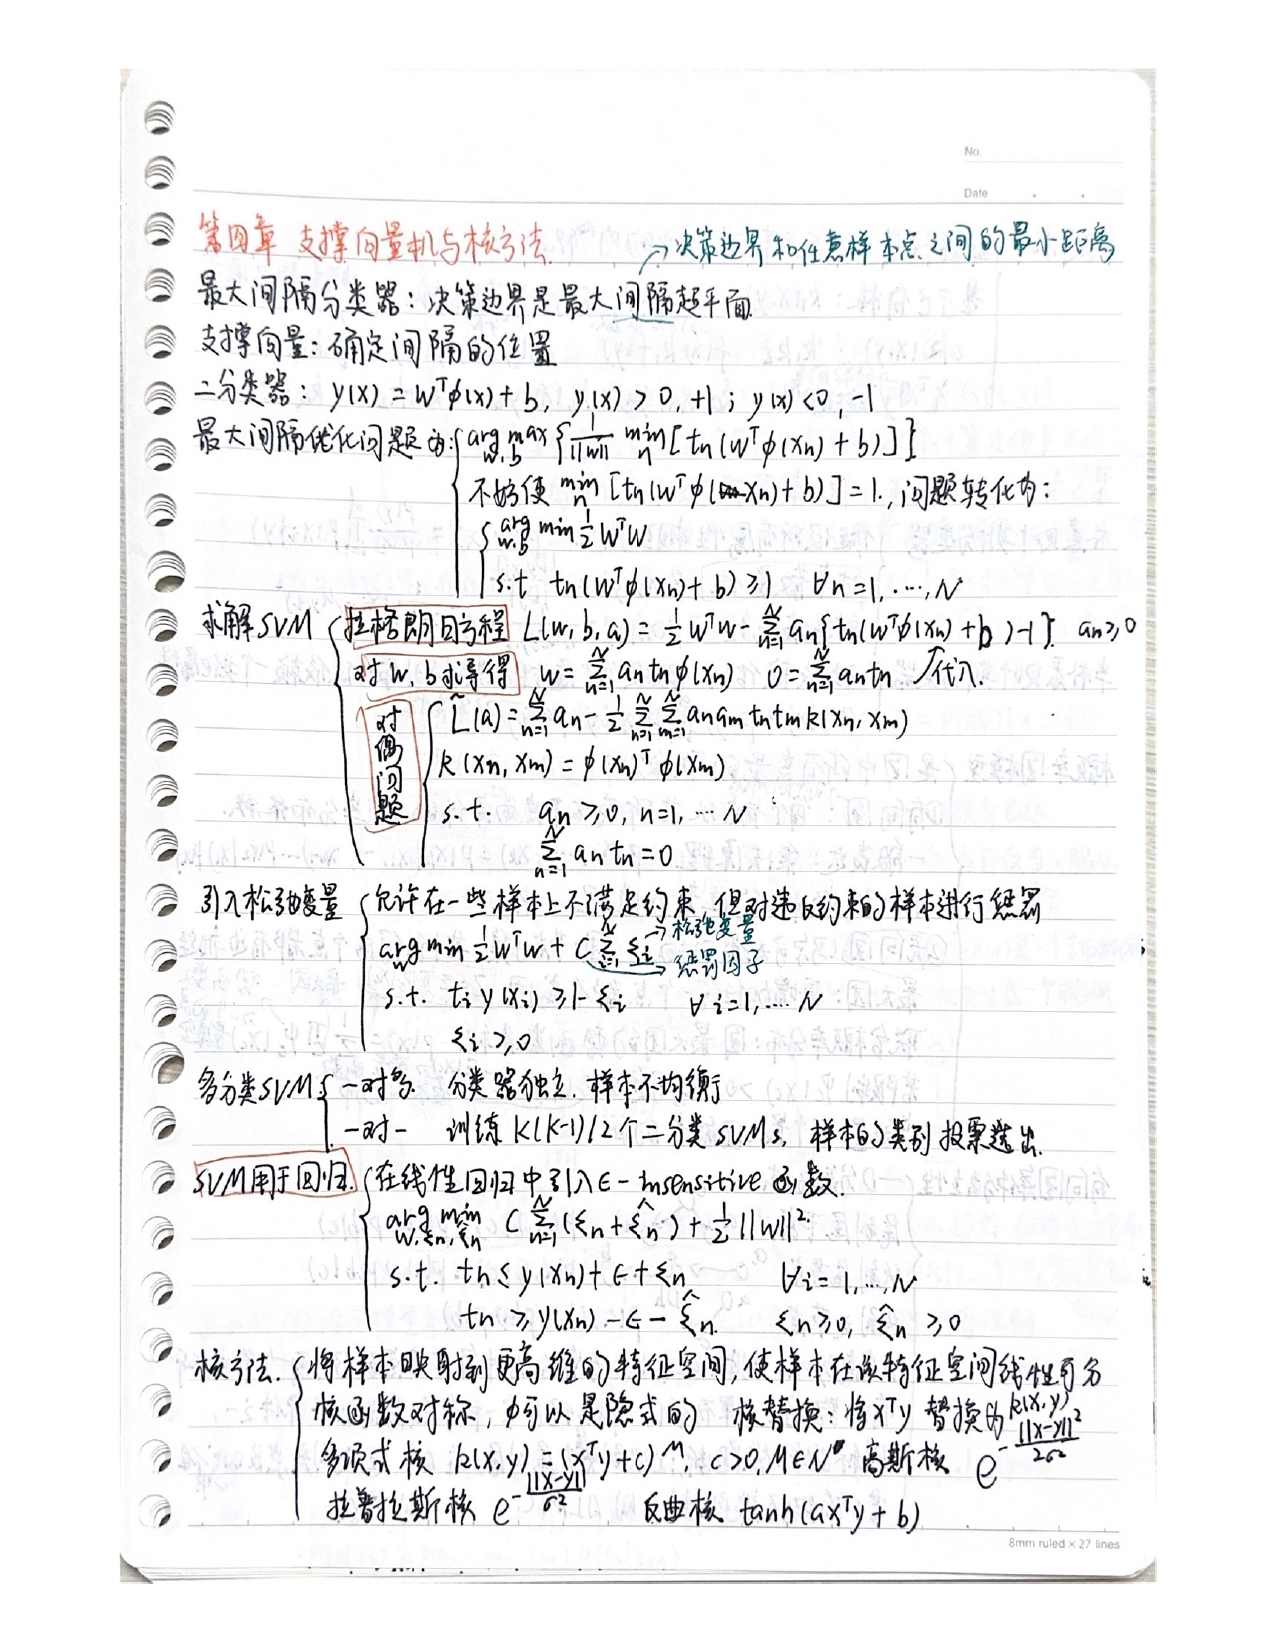 No.
Date
第四章 支撑向量机与核方法
→决策边界和任意样本点之间的最小距离
最大间隔分类器：决策边界是最大间隔超平面
支撑向量：确定间隔的位置
二分类器：y(x) = wᵀφ(x) + b, y(x) > 0, +1 ; y(x) < 0, -1
最大间隔优化问题为：{ arg max_{w,b} { 1/||w|| min_n [tn(wᵀφ(xn) + b)] }
不妨使 min_n [tn(wᵀφ(xn) + b)] = 1., 问题转化为：
{ arg min_{w,b} 1/2 wᵀw
s.t tn(wᵀφ(xn) + b) ≥ 1 ∀n = 1, ⋯, N
求解SVM { 拉格朗日方程 L(w, b, a) = 1/2 wᵀw - Σ_{n=1}^N an{tn(wᵀφ(xn) + b) - 1}. an ≥ 0
对w, b求导得 w = Σ_{n=1}^N an tn φ(xn) 0 = Σ_{n=1}^N an tn ↗代入.
对偶问题 { L̃(a) = Σ_{n=1}^N an - 1/2 Σ_{n=1}^N Σ_{m=1}^N an am tn tm k(xn, xm)
k(xn, xm) = φ(xn)ᵀ φ(xm)
s.t. an ≥ 0, n = 1, ⋯ N
Σ_{n=1}^N an tn = 0
引入松弛变量 { 允许在一些样本上不满足约束, 但对违反约束的样本进行惩罚
arg min_w 1/2 wᵀw + C Σ_{i=1}^N ξi →松弛变量
→惩罚因子
s.t. ti y(xi) ≥ 1 - ξi ∀i = 1, ⋯. N
ξi ≥ 0
多分类SVM { 一对多. 分类器独立. 样本不均衡
一对一 训练 K(K-1)/2个二分类SVMs, 样本的类别投票选出.
SVM用于回归. { 在线性回归中引入ϵ-insensitive函数.
arg min_{w,ξn,ξ̂n} C Σ_{n=1}^N (ξn + ξ̂n) + 1/2 ||w||².
s.t. tn ≤ y(xn) + ϵ + ξn ∀i = 1, ⋯, N
tn ≥ y(xn) - ϵ - ξ̂n. ξn ≥ 0, ξ̂n ≥ 0
核方法. { 将样本映射到更高维的特征空间, 使样本在该特征空间线性可分
核函数对称, φ可以是隐式的 核替换：将xᵀy替换为k(x, y)
多项式核 k(x, y) = (xᵀy + c)^M, c > 0, M ∈ N 高斯核 e^{-||x-y||²/2σ²}
拉普拉斯核 e^{-||x-y||/σ²} 反曲核 tanh(axᵀy + b)
8mm ruled × 27 lines